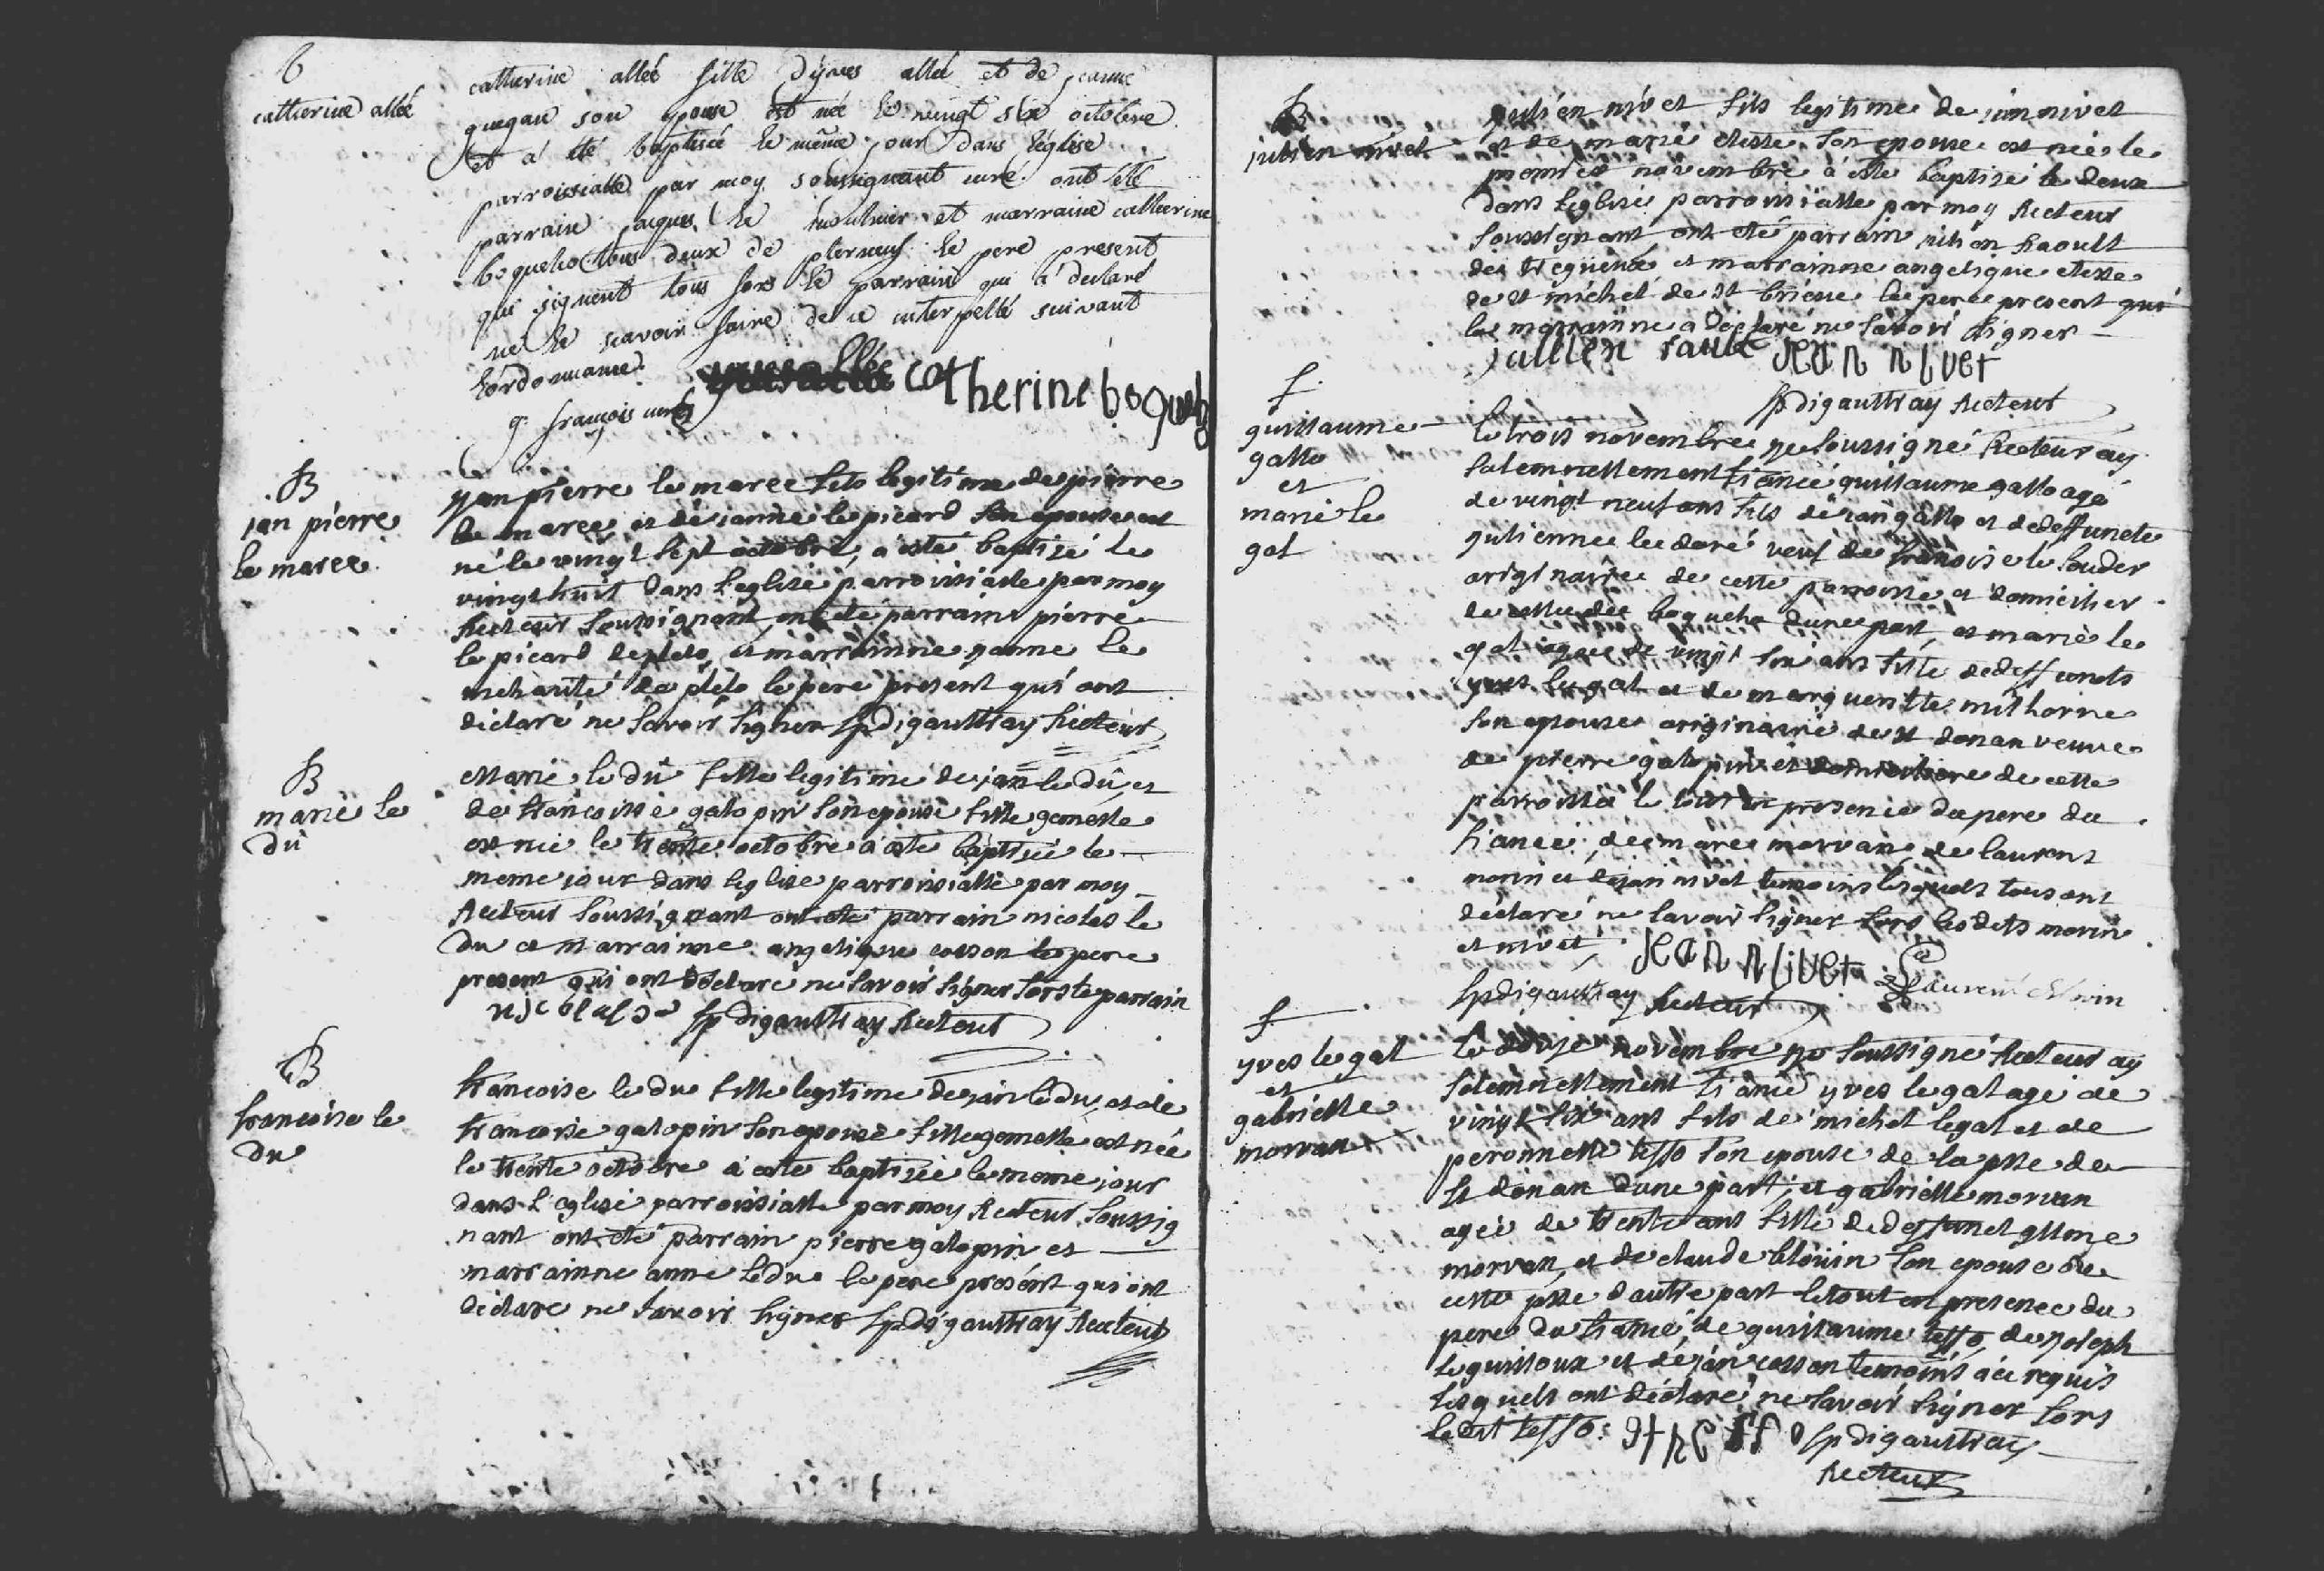 B
catherine allée
catherine allée fille d'yves allée et de jeanne
guegan son epouse est née le vingt six octobre
et a été baptisée le même jour dans l'eglise
parroissialle par moy soussignant curé ont été
parrain jaques le moulnier et marraine catherine
boqueho tous deux de plerneuf le pere present
qui signent tous fors le parrain qui a declaré
ne le scavoir faire de ce interpellé suivant
l'ordonnance
yves allée catherine boqueho
g françois curé
B
jan pierre
le maree
jan pierre le maree fils legitime de pierre
le maree et de janne le picard son epouse est
né le vingt sept octobre, a esté baptizé le
vingt huit dans l'eglise parroissialle par moy
Recteur soussignant, ont été parrain pierre
le picard de plelo, et marrainne janne le
mehauté de plélo le pere present qui ont
déclaré ne savoir signer digaultray Recteur
B
marie le
du
Marie le du fille legitime de jan le du, et
de francoise galopin son epouse fille gemelle
est née le trente octobre a esté baptisée le
meme jour dans l'eglise parroissialle par moy
Recteur soussignant ont été parrain nicolas le
du et marrainne angelique cosson le pere
present qui ont déclaré ne savoir signer fors le parrain
digaultray Recteur
B
francoise le
du
francoise le du fille legitime de jan le du, et de
francoise galopin son epouse fille gemelle est née
le trente octobre a esté baptisée le meme jour
dans l'eglise parroissialle par moy Recteur soussig
nant ont été parrain pierre galopin et
marrainne anne le du le pere présent qui ont
déclaré ne savoir signer digaultray Recteur
B
julien nivet
julien nivet fils legitime de jan nivet
et de marie son epouse est né le
premier novembre a esté baptizé le deux
dans l'eglise parroissialle par moy Recteur
soussignant ont été parrain julien Raoult
de tregueux et marrainne angelique
de st michel de st brieuc le pere present qui
la marrainne a déclaré ne savoir signer
jullien rault jean nivet
digaultray Recteur
f
guillaume
gallo
et
marie le
gal
le trois novembre je soussigné Recteur ay
solemnellement fiancé guillaume gallo agé
de vingt neuf ans fils de jan gallo et de deffuncte
julienne le doré veuf de francoise le souder
originaire de cette parroisse et domicilier
de celle de boqueho d'une part, et marie le
gal agee de vingt six ans fille de deffuncts
yves le gal et de marguerite milhorne
son epouse originaire de st donan veuve
de pierre galopin et domiciliere de cette
parroisse le tout en presence du pere du
fiancé, de marc morvan, de laurent
morin et de jan nivet temoins lesquels tous ont
déclaré ne savoir signer fors lesdits morin
et nivet jean nivet Laurent Morin
digaultray Recteur
f
yves le gal
et
gabrielle
morvan
le douze novembre je soussigné Recteur ay
solemnellement fiancé yves le gal agé de
vingt six ans fils de michel le gal et de
peronnelle tesso son epouse de la psse de
st donan d'une part, et gabrielle morvan
agée de trente ans fille de deffunct
morvan, et de claude blouin son epouse de
cette psse d'autre part le tout en presence du
pere du fiancé, de guillaume tesso, de joseph
le guilloux et de jan cosson temoins a ce requis
lesquels ont déclaré ne savoir signer fors
ledit tesso digaultray
Recteur